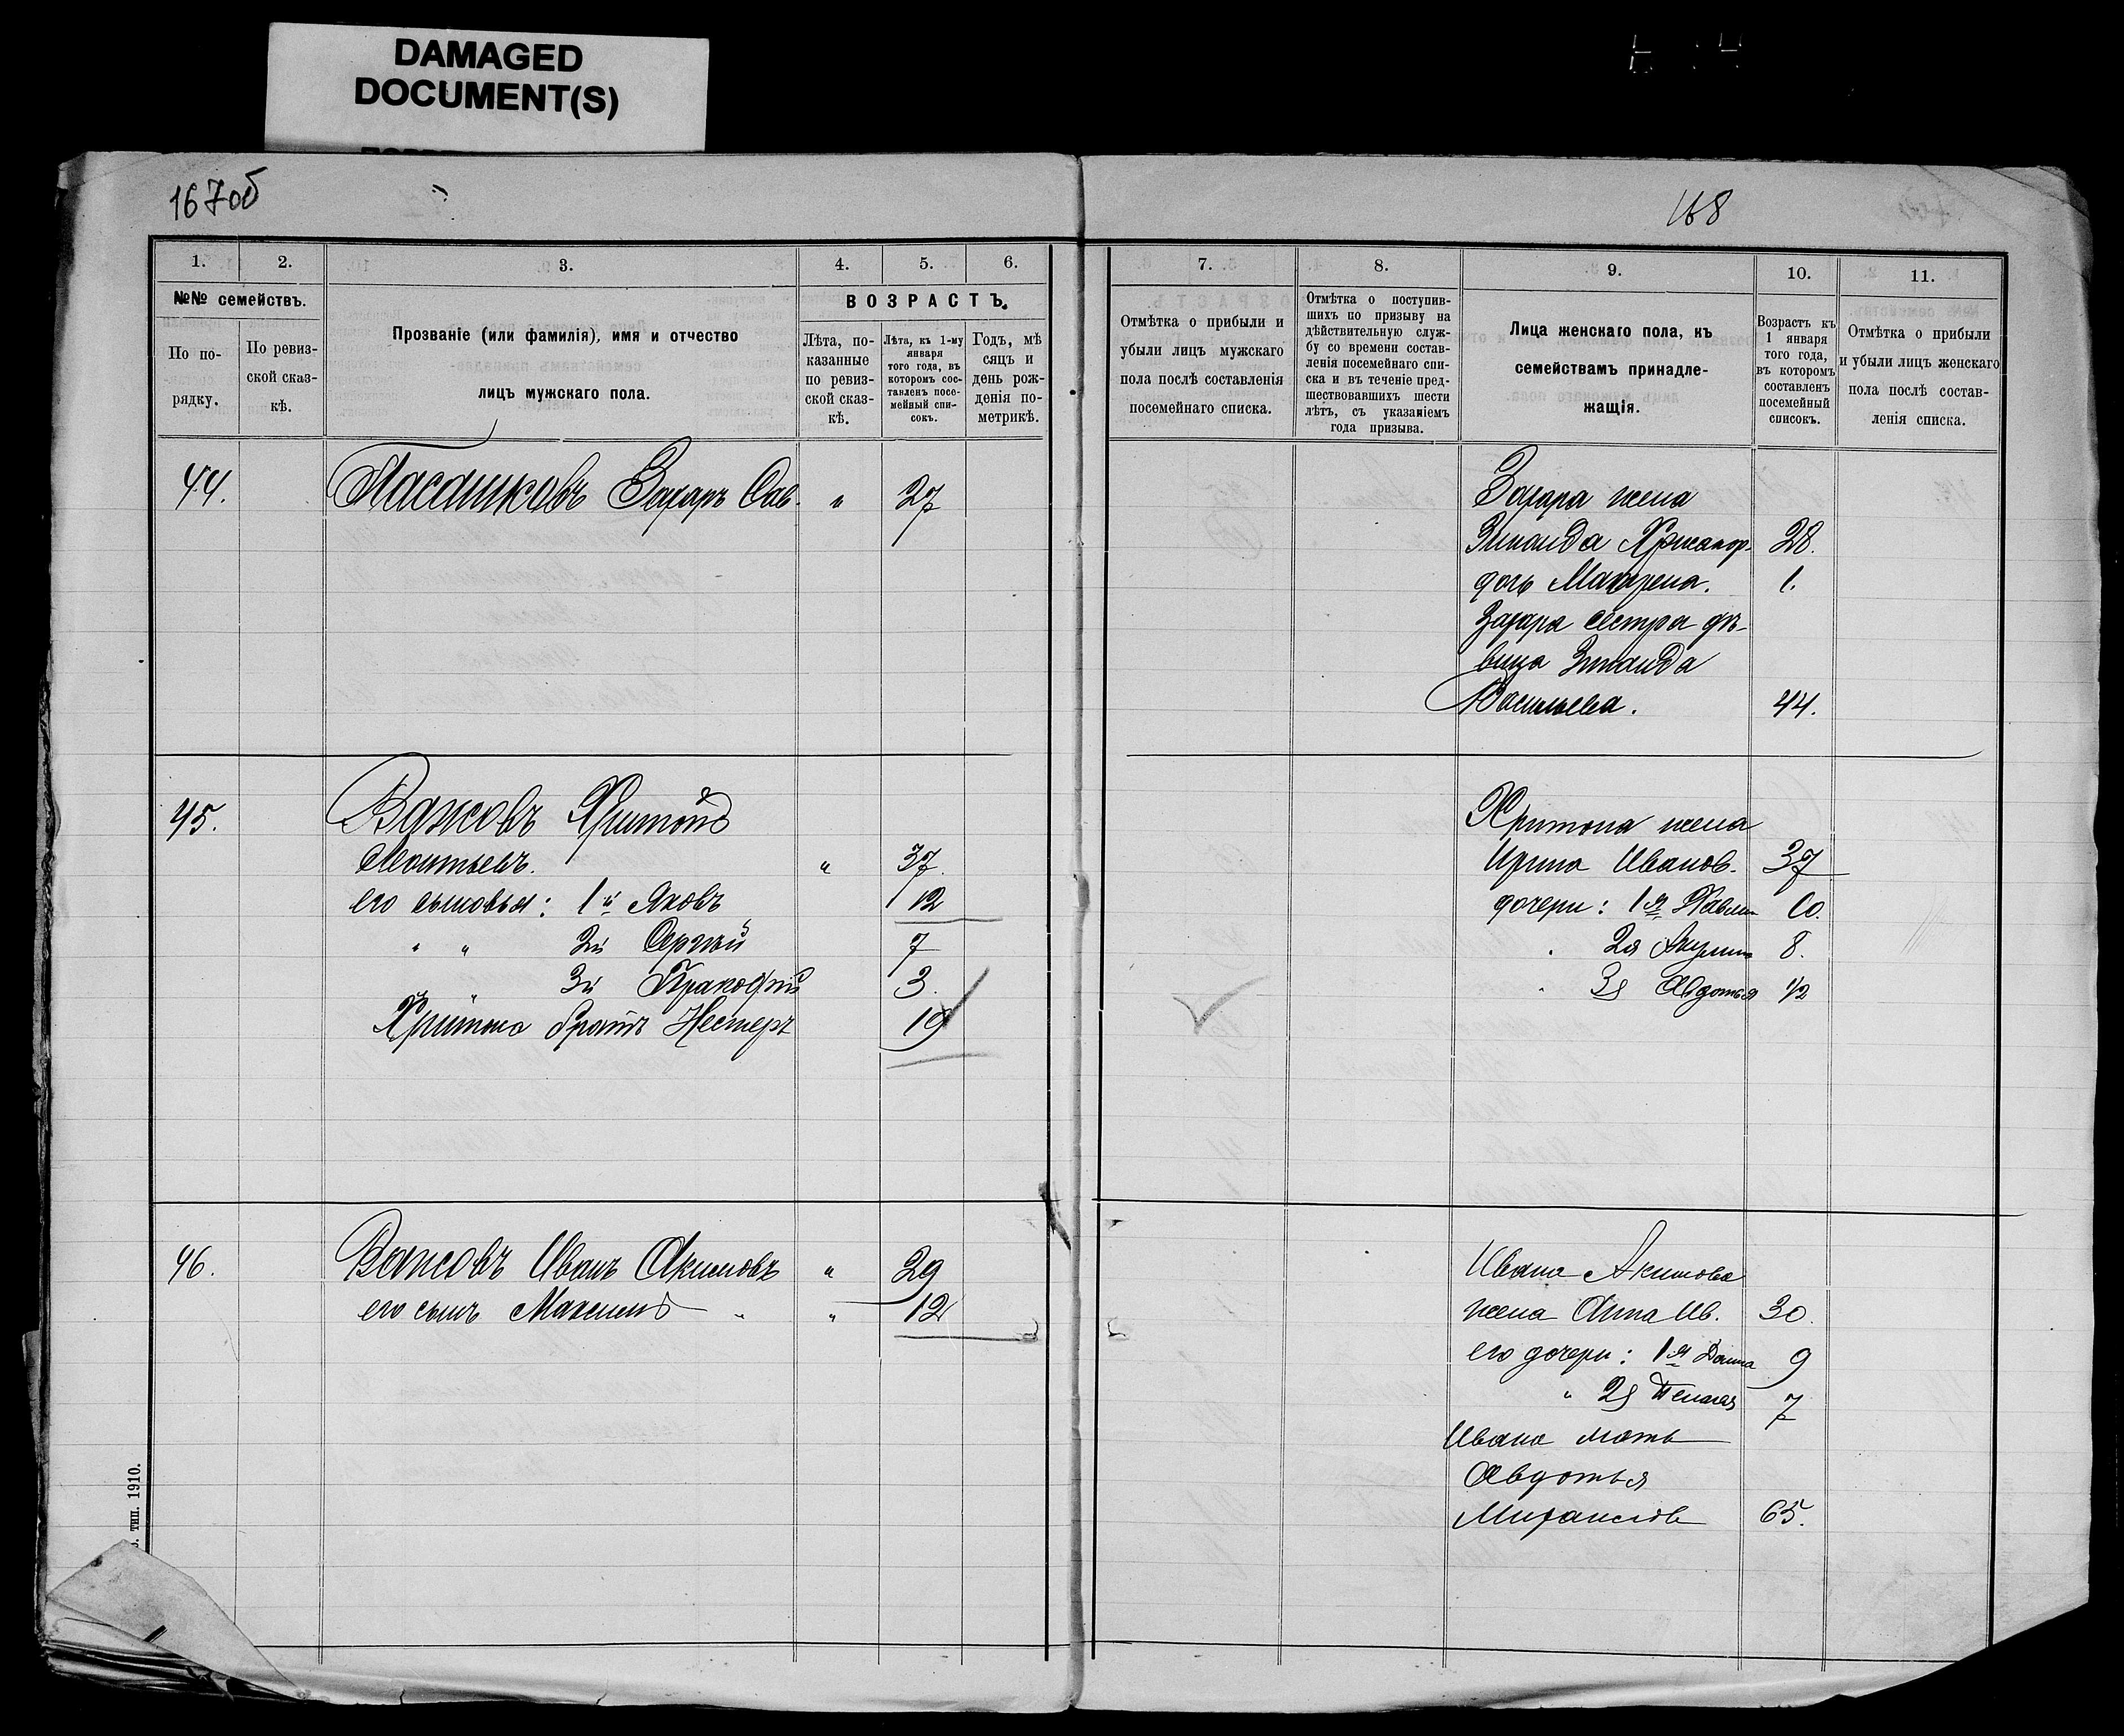 DAMAGED
DOCUMENT(S)
167об
168
1.
2.
3.
4.
5.
6.
№№ семействъ.
По по-
рядку.
По ревиз-
ской сказ-
кѣ.
Прозваніе (или фамилія), имя и отчество
лицъ мужскаго пола.
ВОЗРАСТЪ.
Лѣта, по-
казанные
по ревиз-
ской сказ-
кѣ.
Лѣта, къ 1-му
января
того года, въ
которомъ сос-
тавленъ посе-
мейный спи-
сокъ.
Годъ, мѣ
сяцъ и
день рож-
денія по-
метрикѣ.
44.
Захаръ Сав. " 27
45.
Харитонъ
Леонтьевъ. " 37
его сыновья: 1й Яковъ 12
" " 2й Сергѣй 7
" 3й 3
Харитона братъ Нестеръ 19
46.
Иванъ Акимовъ " 29
его сынъ Максимъ " " 12
тип. 1910.
7.
8.
9.
10.
11.
Отмѣтка о прибыли и
убыли лицъ мужскаго
пола послѣ составленія
посемейнаго списка.
Отмѣтка о поступив-
шихъ по призыву на
дѣйствительную служ-
бу со времени состав-
ленія посемейнаго спи-
ска и въ теченіе пред-
шествовавшихъ шести
лѣтъ, съ указаніемъ
года призыва.
Лица женскаго пола, къ
семействамъ принадле-
жащія.
Возрастъ къ
1 января
того года,
въ которомъ
составленъ
посемейный
списокъ.
Отмѣтка о прибыли
и убыли лицъ женскаго
пола послѣ состав-
ленія списка.
Захара жена
28.
дочь Матрена. 1.
Захара сестра дѣ-
вица Зинаида
Васильева. 44.
Харитона жена
Ирина Иванов. 37
дочери: 1я 10.
" 2я Акулина 8.
" 3я Авдотья 1/2
Ивана Акимова
жена Анна Ив. 30.
его дочери: 1я 9
" 2я Пелагея 7
Ивана мать
Авдотья
65.